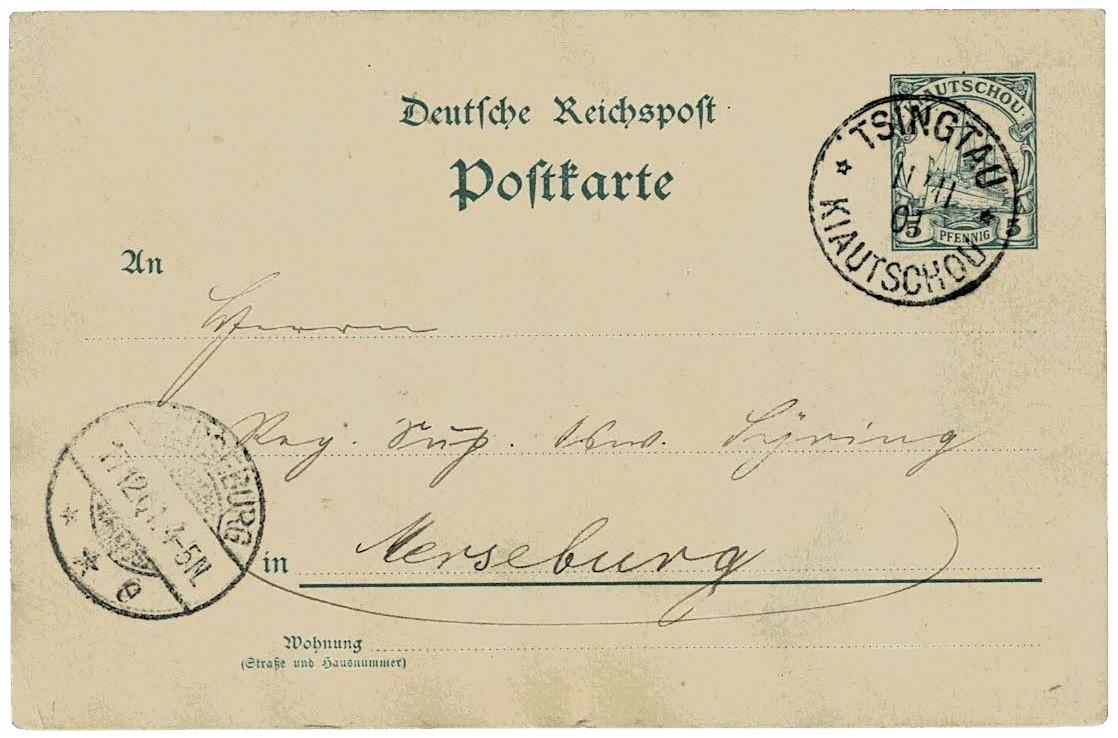 Deutsche Reichspost
Postkarte
AUTSCHOU
5 PFENNIG 5
TSINGTAU
01
KIAUTSCHOU
An
Herrn
Reg. Sup.
in Merseburg
SEBURG
17.12.01. 4-5N.
* * e
Wohnung
(Straße und Hausnummer)